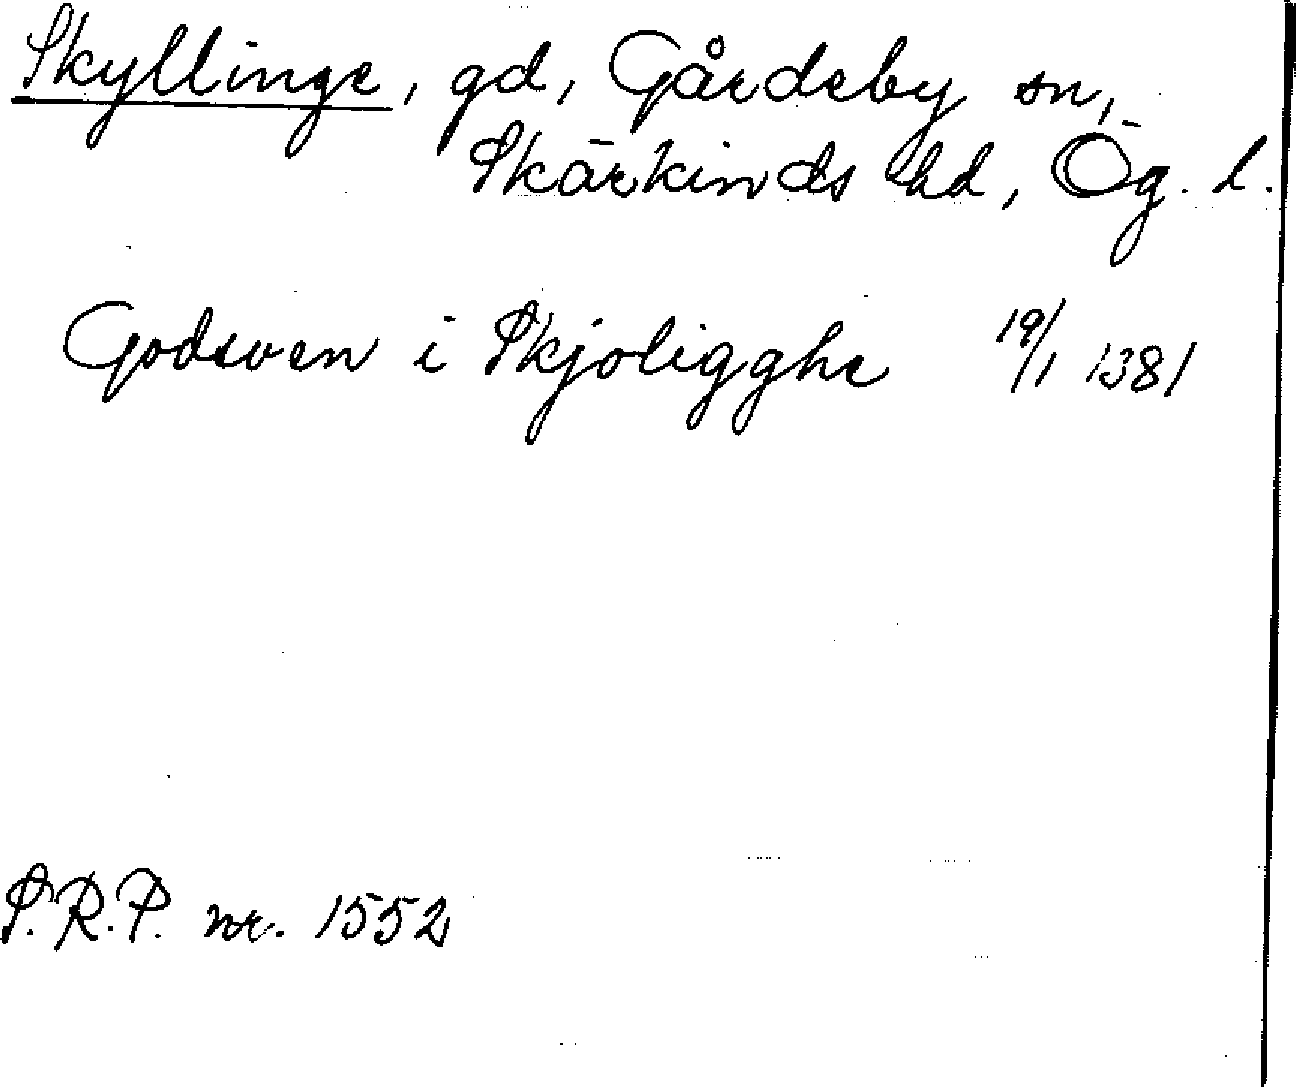 Skyllinge, gd, Gårdeby sn,
Skärkinds hd, Ög. l.
Godsven i Skjoligghe 19/1 1381
S.R.P. nr. 1552